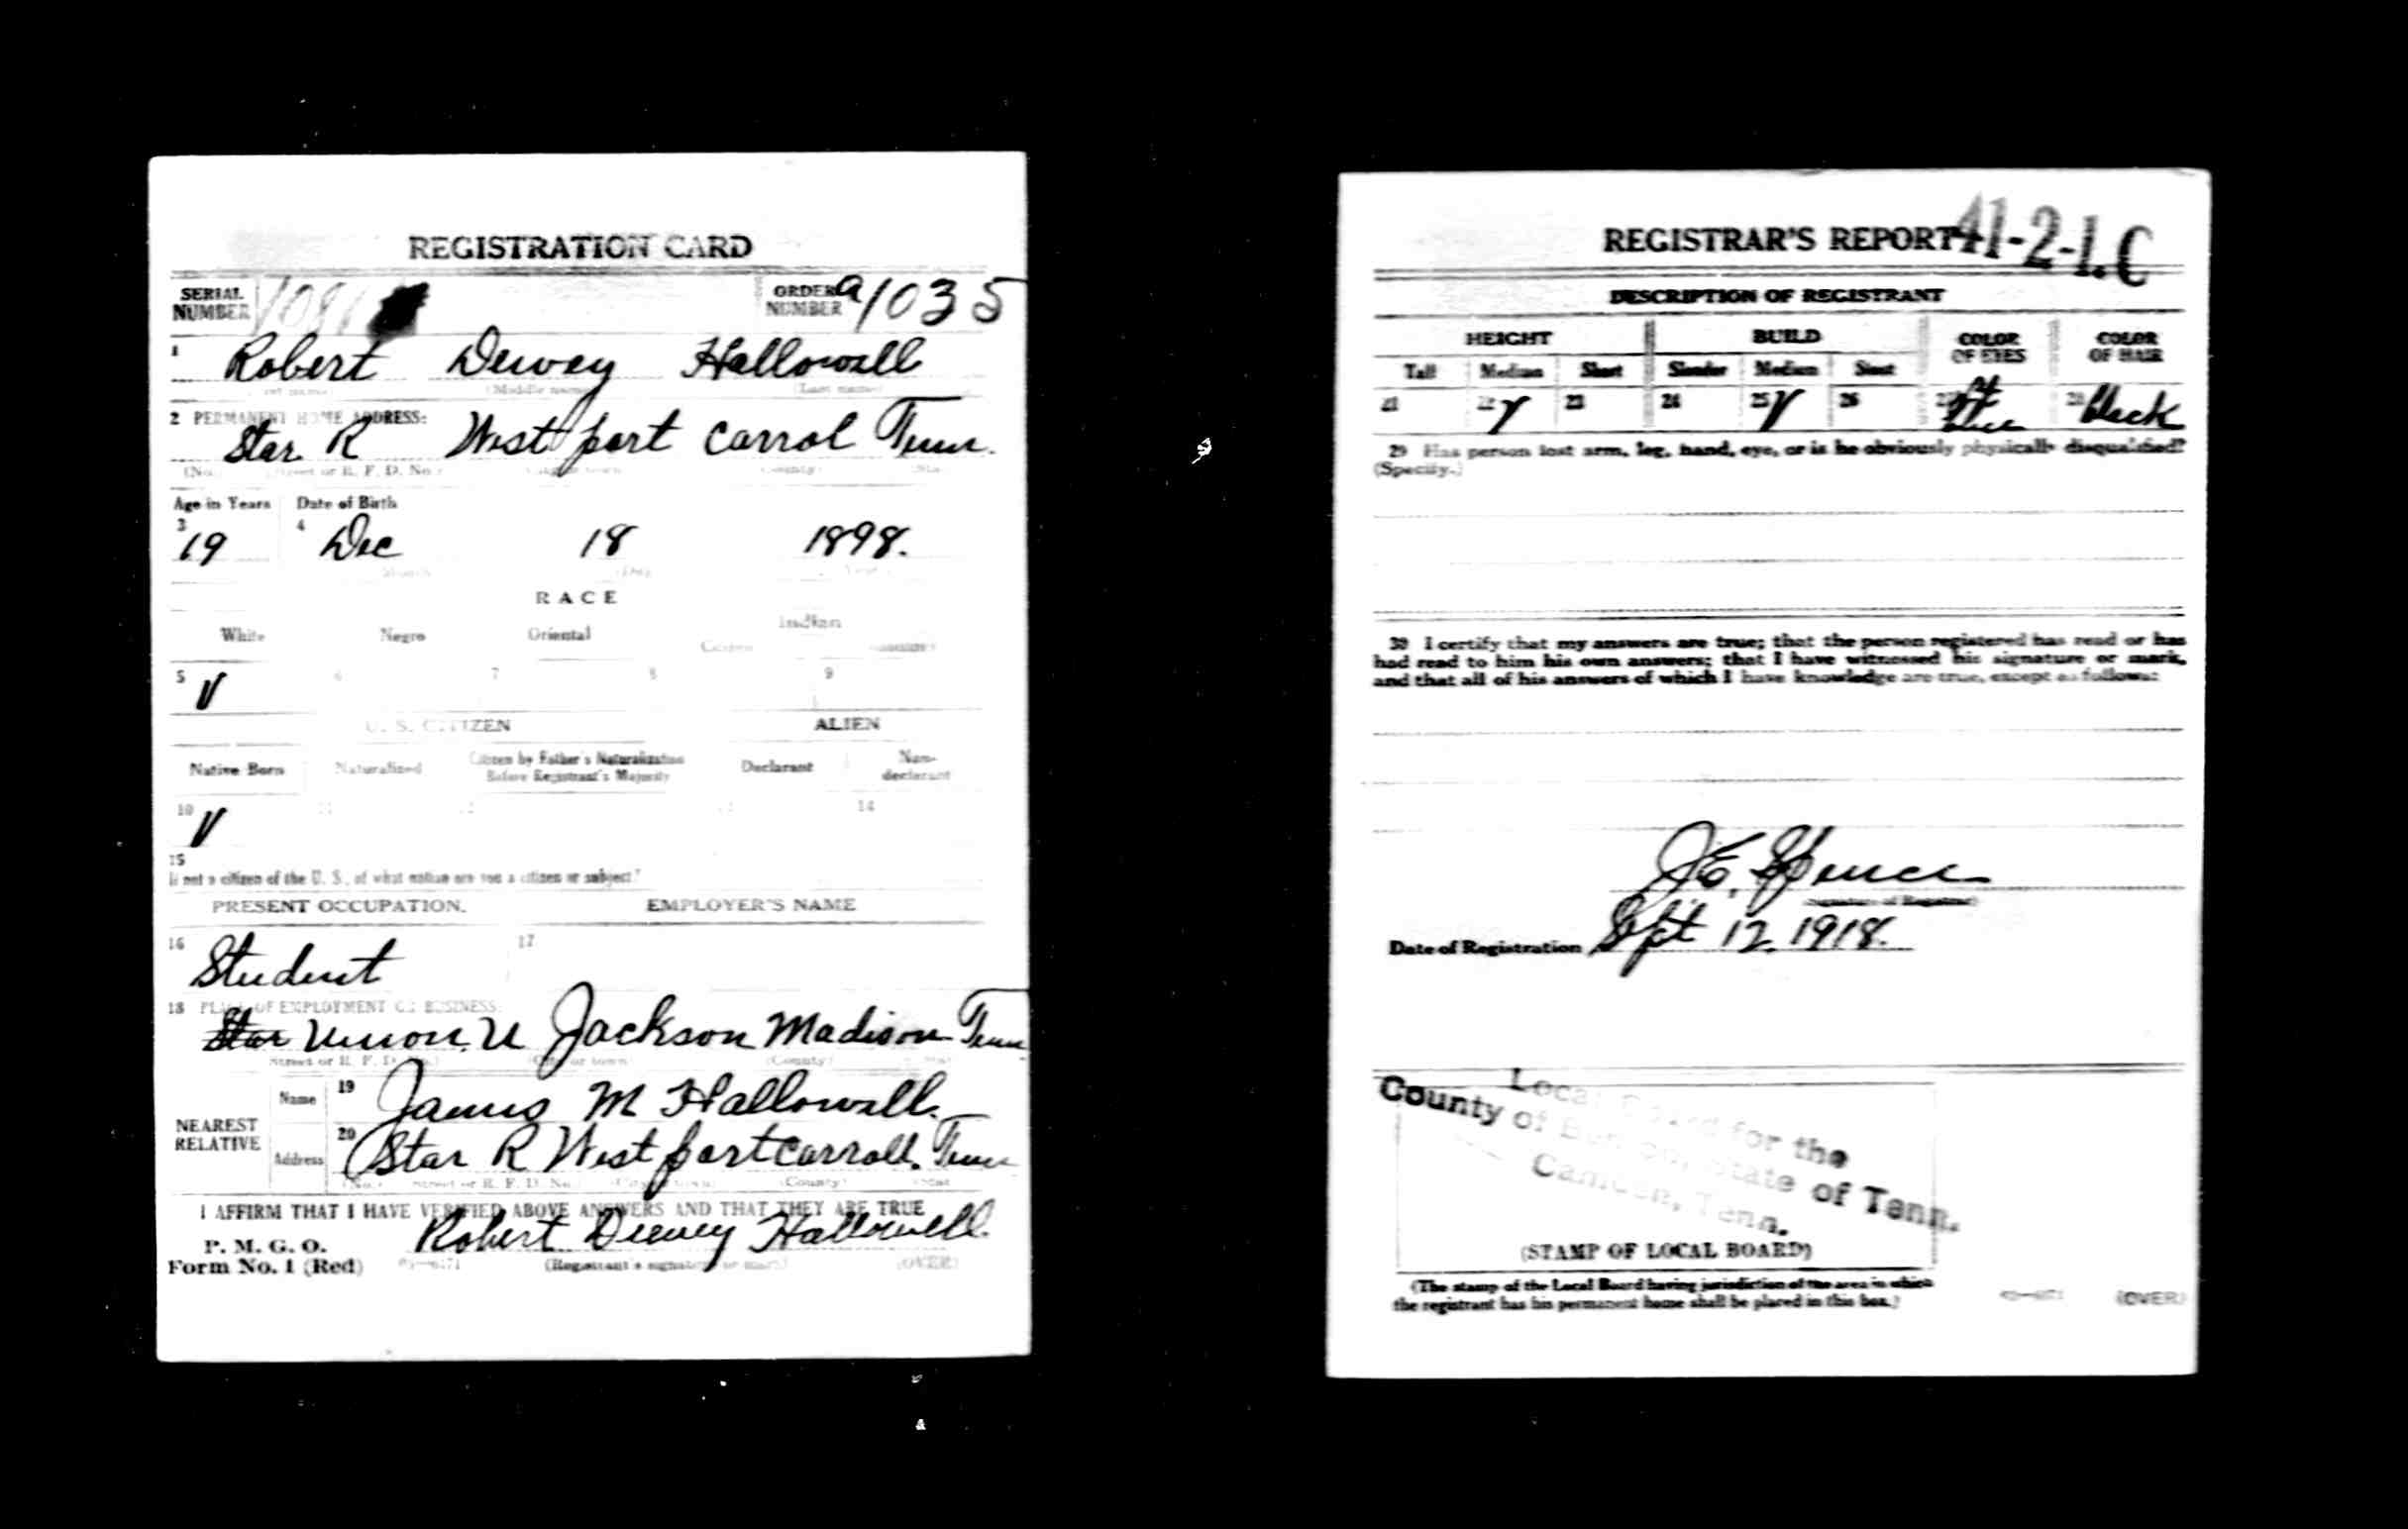 REGISTRATION CARD
SERIAL NUMBER
ORDER NUMBER A1035
1 Robert Dewey Hallowell
(Middle name) (Last name)
2 PERMANENT HOME ADDRESS:
Star R Westport Carrol Tenn.
(No.) (Street or R. F. D. No.) (City or town) (County) (State)
Age in Years Date of Birth
3 19 4 Dec 18 1898.
Month (Day) Year
RACE
White Negro Oriental Indian
Citizen Noncitizen
5 V 6 7 8 9
U. S. CITIZEN ALIEN
Native Born Naturalized Citizen by Father's Naturalization Before Registrant's Majority Declarant Non-declarant
10 V 11 12 13 14
15
If not a citizen of the U. S., of what nation are you a citizen or subject?
PRESENT OCCUPATION. EMPLOYER'S NAME
16 Student 17
18 PLACE OF EMPLOYMENT OR BUSINESS:
Star Union. U Jackson Madison Tenn
Street or R. F. D. No.) (City or town) (County) State
NEAREST RELATIVE
Name 19 James M Hallowell.
Address 20 Star R Westport Carroll. Tenn
(No.) Street or R. F. D. No. (City or town) (County) State
I AFFIRM THAT I HAVE VERIFIED ABOVE ANSWERS AND THAT THEY ARE TRUE
P. M. G. O.
Form No. 1 (Red)
Robert Dewey Hallowell.
(Registrant's signature or mark) (OVER)
REGISTRAR'S REPORT 41-2-1.C
DESCRIPTION OF REGISTRANT
HEIGHT BUILD COLOR OF EYES COLOR OF HAIR
Tall Medium Short Slender Medium Stout
21 22 V 23 24 25 V 26 27 28 black
29 Has person lost arm, leg, hand, eye, or is he obviously physically disqualified?
(Specify.)
30 I certify that my answers are true; that the person registered has read or has
had read to him his own answers; that I have witnessed his signature or mark,
and that all of his answers of which I have knowledge are true, except as follows:
J. E. Spence
(Signature of Registrar)
Date of Registration Sept 12. 1918.
Local Board for the
County of Benton, State of Tenn.
Camden, Tenn.
(STAMP OF LOCAL BOARD)
(The stamp of the Local Board having jurisdiction of the area in which
the registrant has his permanent home shall be placed in this box.)
(OVER)